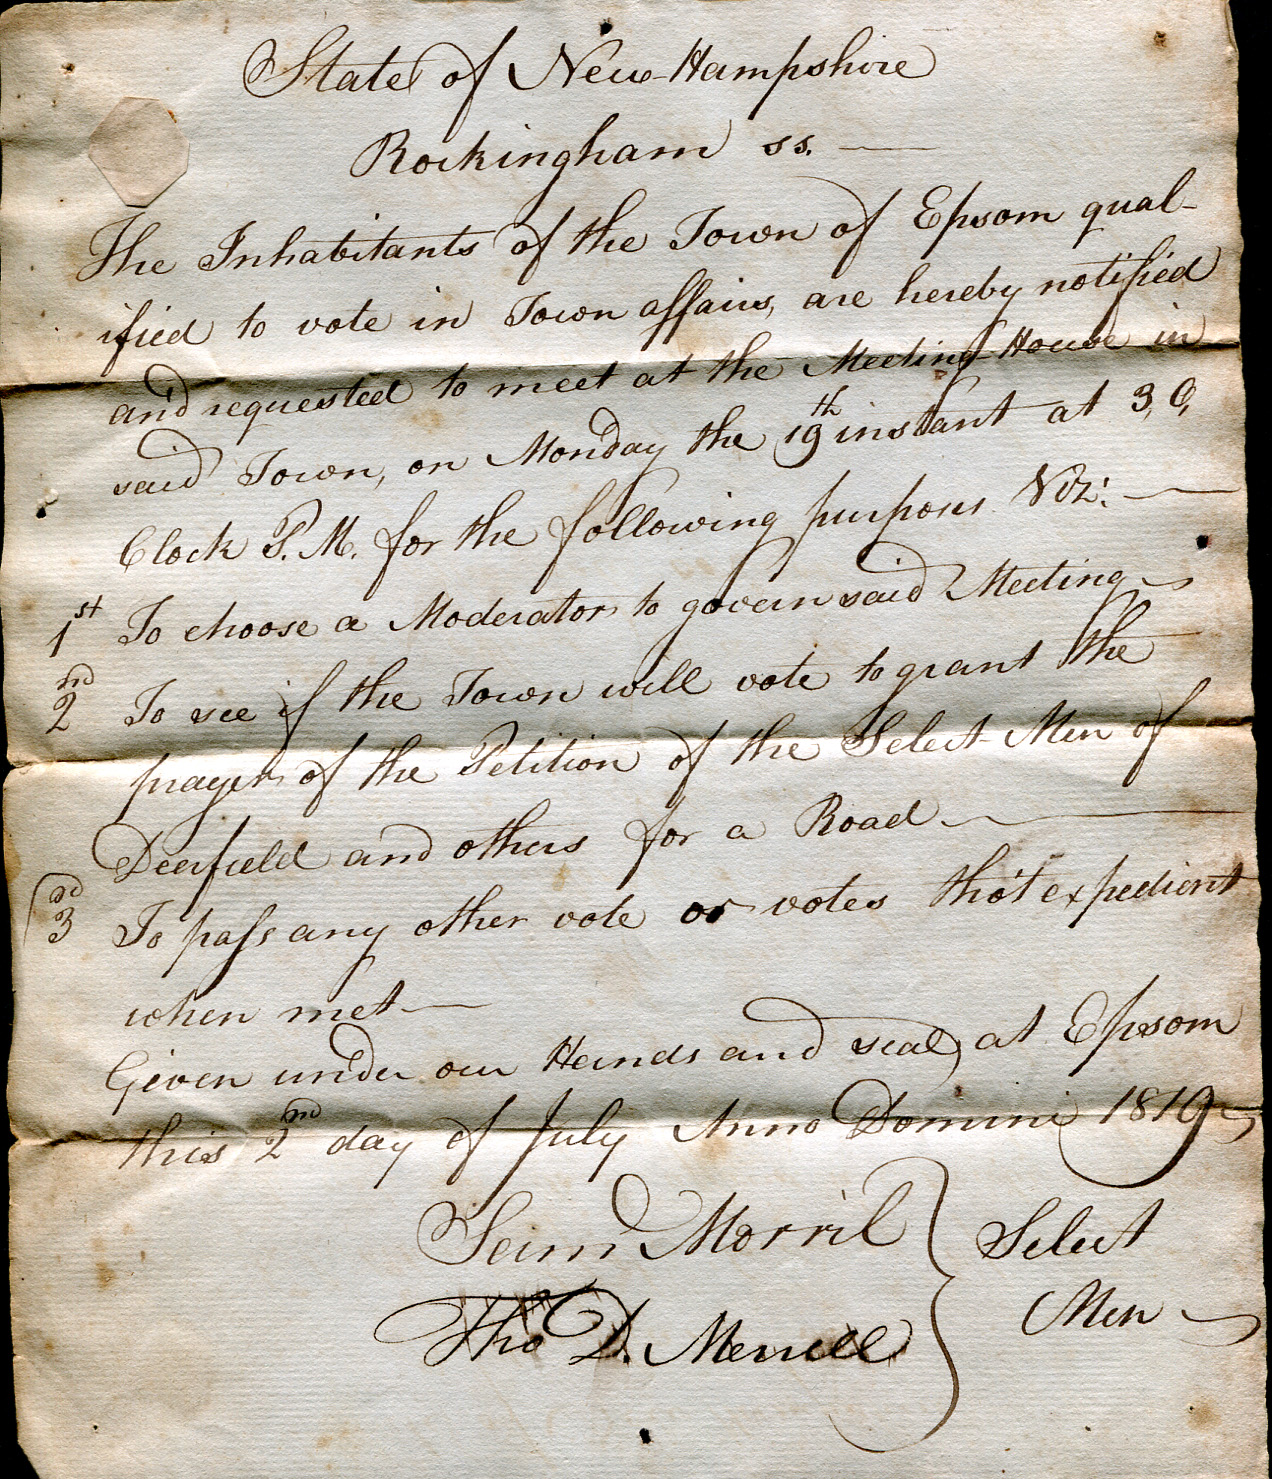 State of New-Hampshire
Rockingham ss.
The Inhabitants of the Town of Epsom qual-
ified to vote in Town affairs, are hereby notified
and requested to meet at the Meeting-House in
said Town, on Monday the 19th instant at 3, O,
Clock P.M. for the following purposes Viz:
1st To choose a Moderator to govern said Meeting
2nd To see if the Town will vote to grant the
prayer of the Petition of the Select-Men of
Deerfield and others for a Road
3rd To pass any other vote or votes tho't expedient
when met
Given under our Hands and seal, at Epsom
this 2nd day of July Anno Domini 1819
Sam Morril } Select
Tho D. Merrill } Men